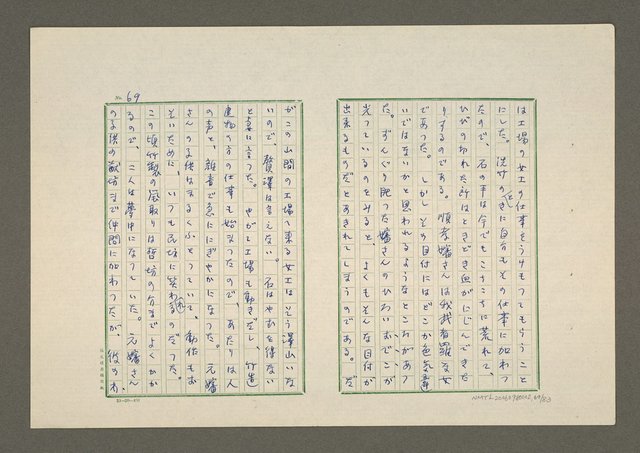 は工場の女工の仕事をうけもってもらうこと
にした。洗サのときに自分もその仕事に加わっ
たので、石の手は今でもこちこちに荒れて、
ひびの切れた所はときどき血がにじんできた
りするのである。順孝嬸さんは我武者羅な女
であった。しかしその目付にはどこか色気違
いではないかと思われるようなところがあっ
た。ずんぐり肥った嬸さんのひろいおでこが
光っているのをみると、よくもそんな目付が
出来るものだとあきれてしまうのである。だ
No. 69
がこの山間の工場へ来る女工はそう沢山いな
いので、贅沢は言えない。石はやむを得ない
と妻に言った。やがて工場も動きだし、竹造
建物の方の仕事も始まったので、あたりは人
の声と、雑音で急ににぎやかになった。元嬸
さんの子供はまるくふとっていて、動作もお
そいために、いつも民坊に笑われるのだった。
この頃竹製の風取りは哲坊の分までよくかか
るので、二人は夢中になっていた。元嬸さん
の子供の敏坊まで仲間に加わったが、彼のわ
NMTL20060980012_69/83